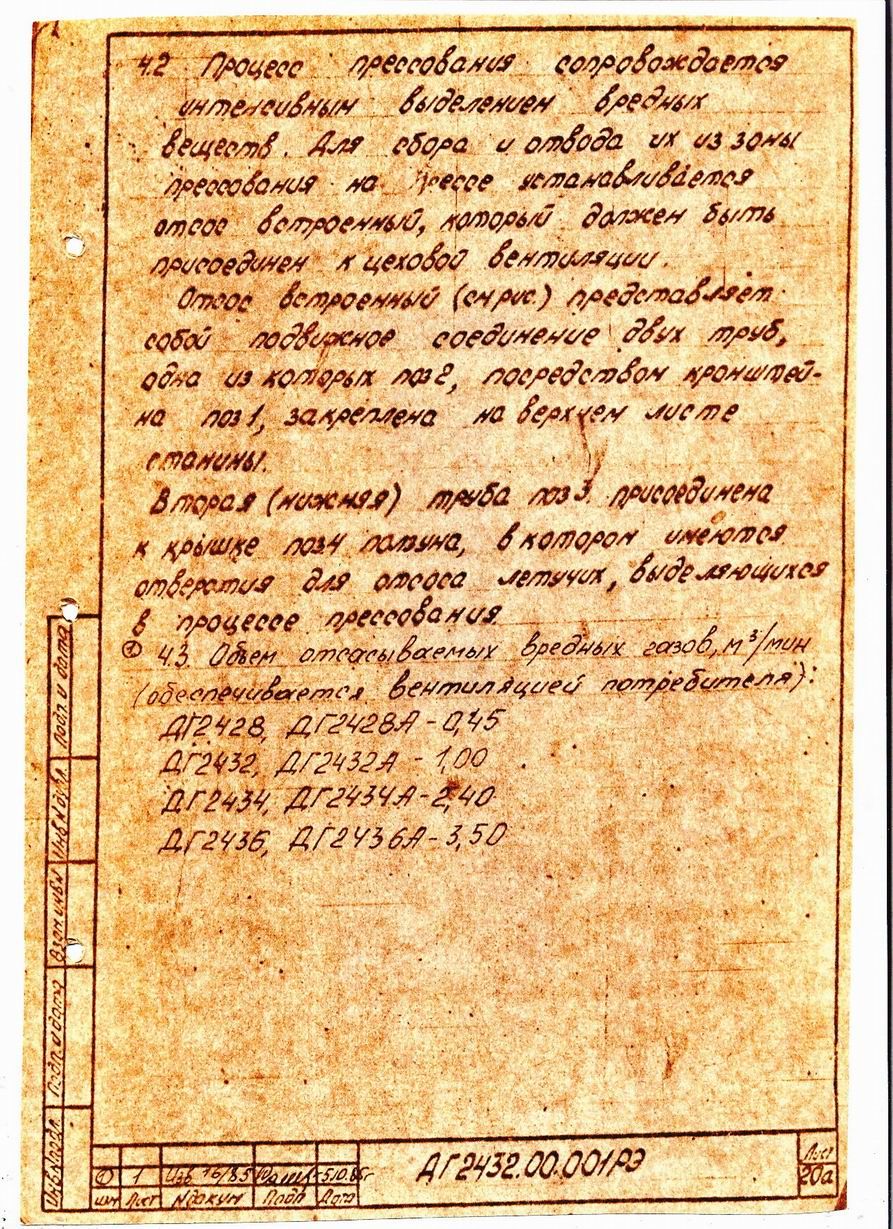 4.2 Процесс прессования сопровождается
интенсивным выделением вредных
веществ. Для сбора и отвода их из зоны
прессования на прессе устанавливается
отсос встроенный, который должен быть
присоединен к цеховой вентиляции.
Отсос встроенный (см рис.) представляет
собой подвижное соединение двух труб,
одна из которых поз 2, посредством кронштей-
на поз 1, закреплена на верхнем листе
станины.
Вторая (нижняя) труба поз 3 присоединена
к крышке поз 4 ползуна, в котором имеются
отверстия для отсоса летучих, выделяющихся
в процессе прессования.
① 4.3. Объем отсасываемых вредных газов, м³/мин
(обеспечивается вентиляцией потребителя):
ДГ2428, ДГ2428А - 0,45
ДГ2432, ДГ2432А - 1,00
ДГ2434, ДГ2434А - 2,40
ДГ2436, ДГ2436А - 3,50
Подп. и дата
Инв N дубл.
Взам инв N
Подп. и дата
Инв N подл.
① 1 Изв 16/85
изм Лист N докум Подп Дата
ДГ2432.00.001РЭ
Лист
20а